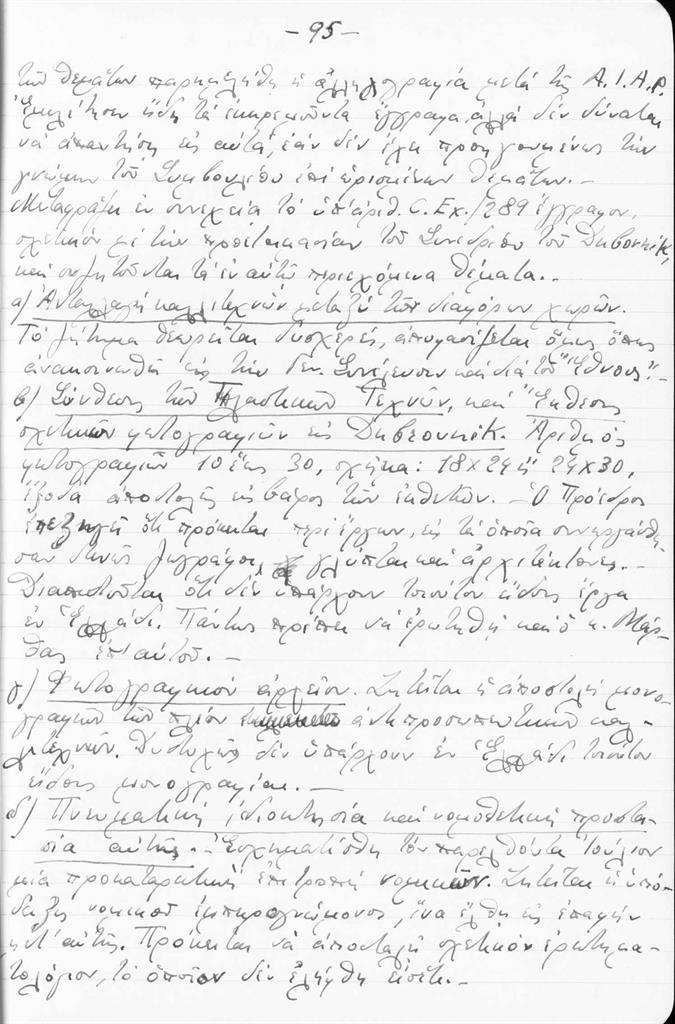 - 95 -
τῶν θεμάτων παρημελήθη ἡ ἀλληλογραφία μετά τῆς A.I.A.P.
ἤδη τά ἐκκρεμοῦντα ἔγγραφα, ἀλλά δέν δύναται
νά ἀπαντήση εἰς αὐτά, ἐάν δέν ἔχη προηγουμένως τήν
γνώμην τοῦ Συμβουλίου ἐπί ὡρισμένων θεμάτων. -
Μεταφράζει ἐν συνεχεία τό ὑπ' ἀριθ. C.Ex./289 ἔγγραφον,
σχετικόν μέ τήν προετοιμασίαν τοῦ Συνεδρίου τοῦ Dubrovnik,
καί συζητοῦνται τά ἐν αὐτῶ περιεχόμενα θέματα. -
α) Ἀνταλλαγή καλλιτεχνῶν μεταξύ τῶν διαφόρων χωρῶν.
Τό ζήτημα θεωρεῖται δυσχερές, ἀποφασίζεται ὅμως ὅπως
ἀνακοινωθῆ εἰς τήν Γεν. Συνέλευσιν καί διά τοῦ "Ἔθνους". -
β) Σύνθεσις τῶν Πλαστικῶν Τεχνῶν, καί Ἔκθεσις
σχετικῶν φωτογραφιῶν εἰς Dubrovnik. Ἀριθμός
φωτογραφιῶν 10 ἕως 30, σχῆμα: 18x24 ἤ 24x30,
ἔξοδα ἀποστολῆς εἰς βάρος τῶν ἐκθετῶν. - Ὁ Πρόεδρος
ἐπεξηγεῖ ὅτι πρόκειται περί ἔργων, εἰς τά ὁποῖα συνειργάσθη-
σαν ζωγράφοι, γλύπται καί ἀρχιτέκτονες. -
Διαπιστοῦται ὅτι δέν ὑπάρχουν τοιούτου εἴδους ἔργα
ἐν Ἑλλάδι. Πάντως πρέπει νά ἐρωτηθῆ καί ὁ κ. Μάρ-
θας ἐπ' αὐτοῦ. -
γ) Φωτογραφικόν ἀρχεῖον. Ζητεῖται ἡ ἀποστολή μονο-
γραφιῶν τῶν πλέον ἀντιπροσωπευτικῶν καλ-
λιτεχνῶν. Δυστυχῶς δέν ὑπάρχουν ἐν Ἑλλάδι τοιούτου
εἴδους μονογραφίαι. -
δ) Πνευματική ἰδιοκτησία καί νομοθετική προστα-
σία αὐτῆς. - Ἐσχηματίσθη τόν παρελθόντα Ἰούλιον
μία προκαταρκτική ἐπιτροπή νομικῶν. Ζητεῖται ἡ ὑπό-
δειξις νομικοῦ ἐμπειρογνώμονος, ἵνα ἔλθη εἰς ἐπαφήν
μετ' αὐτῆς. Πρόκειται νά ἀποσταλῆ σχετικόν ἐρωτημα-
τολόγιον, τό ὁποῖον δέν ἐλήφθη εἰσέτι. -